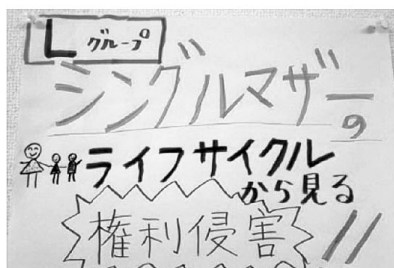 Lグループ
シングルマザーの
ライフサイクル
から見る
権利侵害!!